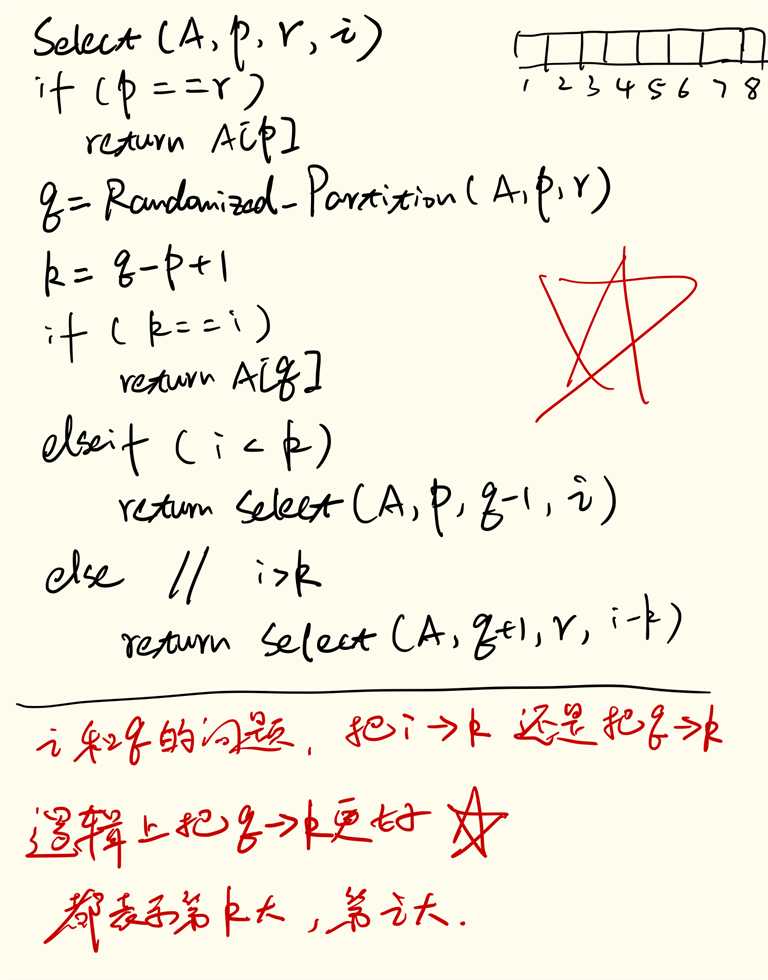 Select (A, p, r, i)
1 2 3 4 5 6 7 8
if (p == r)
return A[p]
q = Randomized-Partition (A, p, r)
k = q-p+1
if (k == i)
return A[q]
elseif (i < k)
return Select (A, p, q-1, i)
else // i>k
return Select (A, q+1, r, i-k)
i和q的问题. 把i→k 还是把q→k
逻辑上把q→k更好
都表示第k大, 第i大.